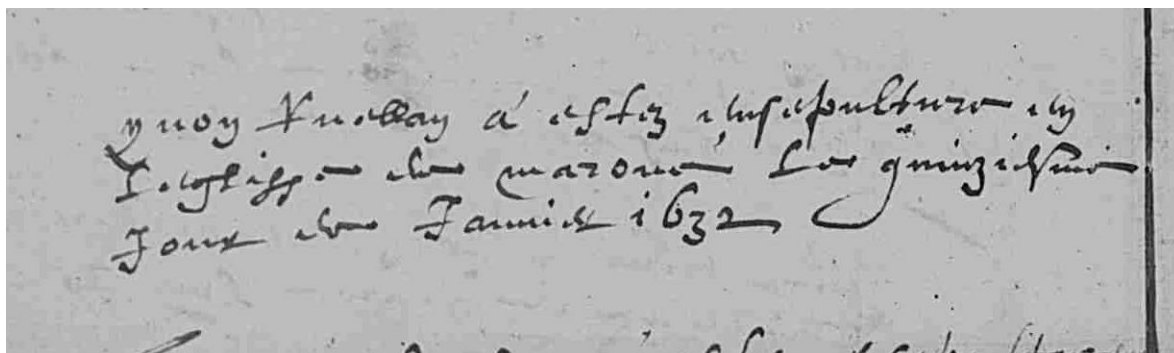 yuon Ruellan a estez insepulture en
Leglisse de maroué Le quinziesme
Jour de Januier 1632